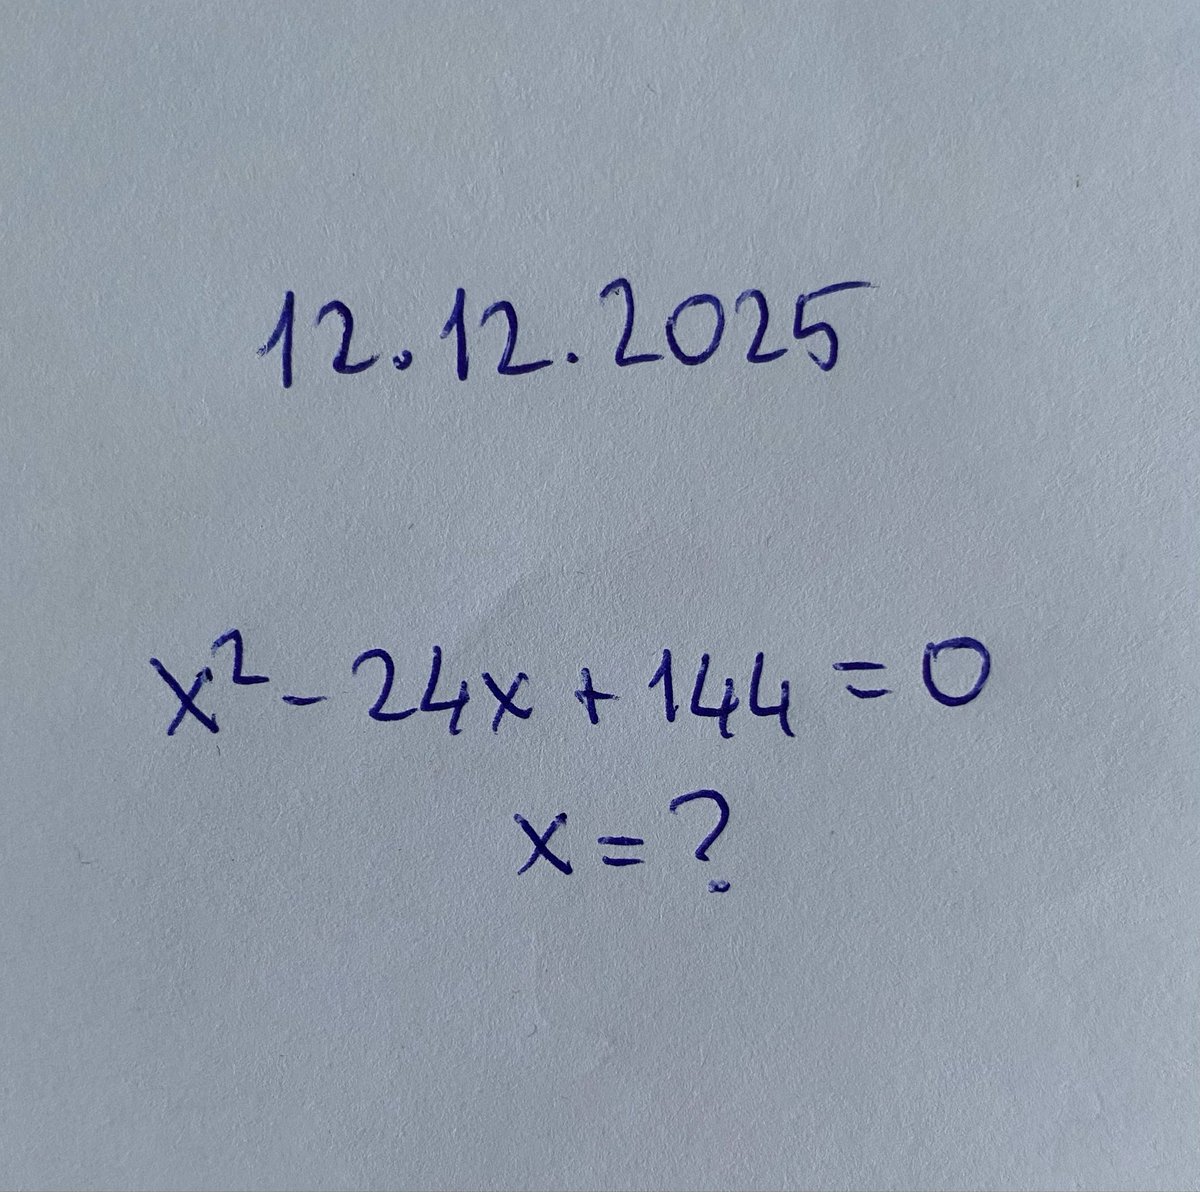 12.12.2025
x² - 24x + 144 = 0
x = ?